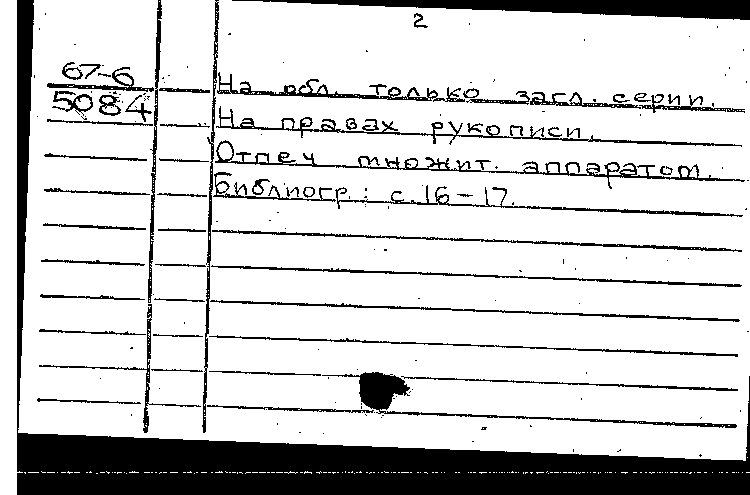 2
67-6
5084
На обл. только загл. серии.
На правах рукописи.
Отпеч множит. аппаратом.
Библиогр: с.16-17.